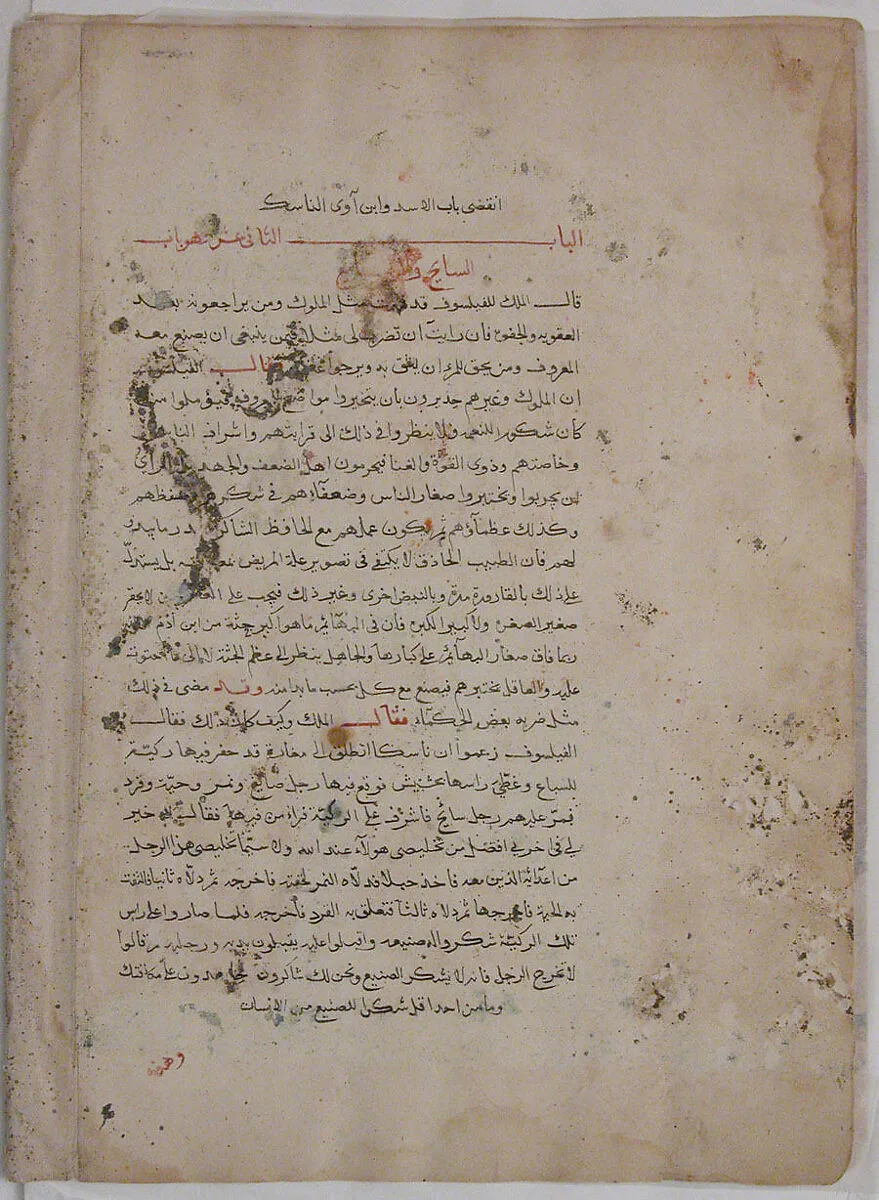 انقضى باب الاسد وابن آوى الناسك
الباب الثانى عشر وهو باب
السايح
قال الملك للفيلسوف قد مثل الملوك ومن يراجعونه بعد
العقوبه والجفوه فان رايت ان تضرب لى مثلا فيمن ينبغى ان يصنع معه
المعروف ومن يحق للمرء ان يثق به ويرجوا قال الفيلسوف
ان الملوك وغيرهم جديرون بان يتخيروا مواضع
كان شكورا للنعمه ولا ينظروا فى ذلك الى قرابتهم واشراف الناس
وخاصتهم وذوى القوة والغنا فيحرمون اهل الضعف والجهد
ان يجربوا ويختبروا صغار الناس وضعفآءهم فى شكرهم وحفظهم
وكذلك عظمآؤهم ثم يكون عملهم مع الحافظ الشاكر
لهم فان الطبيب الحاذق لا يكتفى فى تصوير علة المريض بل يستدل
على ذلك بالقارورة مرة وبالنبض اخرى وغير ذلك فيجب على لا يحقر
صغير الصغره ولا كبيرا لكبره فان فى البهآئم ما هو اكبر جثة من ابن آدم
ربما فاق صغار البهآئم على كبارها والجاهل ينظر الى عظم الجثة لا الى
عليه والعاقل يختبرهم فيصنع مع كل بحسب ما وقد مضى فى ذلك
مثل ضربه بعض الحكمآء فقال الملك وكيف كان ذلك فقال
الفيلسوف زعموا ان ناسكا انطلق الى مغارة قد حفر فيها ركيّة
للسباع وغطى راسها بحشيش فوقع فيها رجل صايغ ونمر وحيّة وقرد
فمرّ عليهم رجل سايح فاشرف على الركية فراء من فيها فقال خير
لى فى اخرتى افضل من تخليصى هولآء عند الله ولا سيّما تخليصى هذا الرجل
من اعدائه الذين معه فاخذ حبلا فدلاه النمر لخفته فاخرجه ثم دلاه ثانيا فالتفت
به الحية فاخرجها ثم دلاه ثالثا فتعلق به القرد فاخرجه فلما صاروا على راس
تلك الركية شكروا له صنيعه واقبلوا عليه يقبلون يديه ورجليه وقالوا
لا تخرج الرجل فانه لا يشكر الصنيع ونحن لك شاكرون على مكافتك
وما من احد اقل شكرا للصنيع من الانسان